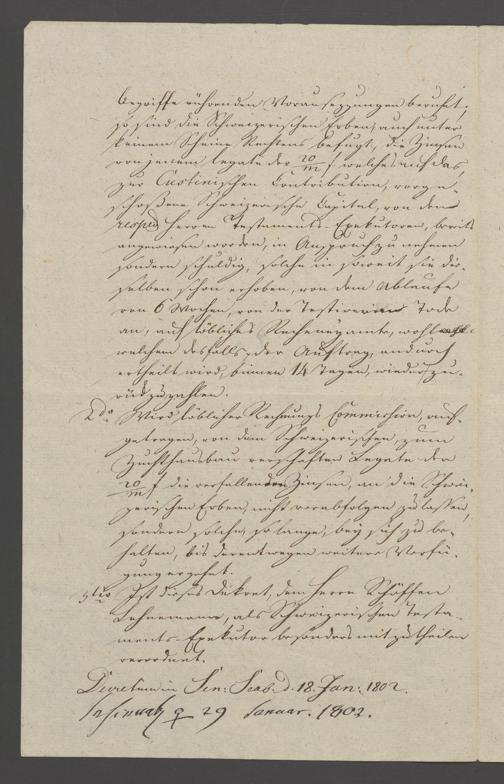 begriffe rührenden Voraussezzungen beruhet;
so sind die Schweizerischen Erben, auch unter
keinem Scheine Rechtens befugt, die Zinsen
von jenem Legate der 20/m f welches auf das,
zur Custinischen Contribution, vorge-
schossene Schweizerische Capital, von denen
respec. Herren Testaments-Exekutoren, bereits
angewiesen worden, in Anspruch zu nehmen
sondern schuldig, solche in soweit sie die-
selben schon erhoben, von dem Ablaufe
von 6 Wochen, von der Testirerin Tode
an, auf löbliches Recheneyamte, wohl
welchem desfalls der Auftrag, andurch
ertheilt wird, binnen 14 Tagen, wieder zu-
rückzuzahlen.
2do Wird löblicher Rechnungs Commission, auf-
getragen, von dem Schweizerischen, zum
Zuchthausbau verschafften Legate der
20/m f die verfallenden Zinsen, an die Schwei-
zerischen Erben, nicht verabfolgen zu lassen,
sondern solche, so lange, bey sich zu be-
halten, bis derentwegen weitere Verfü-
gung ergehet.
3tio Ist dieses Dekret, dem Herrn Schöffen
Lehnemann, als Schweizerischen Testa-
ments-Exekutor besonders mitzutheilen
verordnet.
Decretum in Sen: Scab. d. 18. Jan: 1802.
Insinuat 29 Januar. 1802.